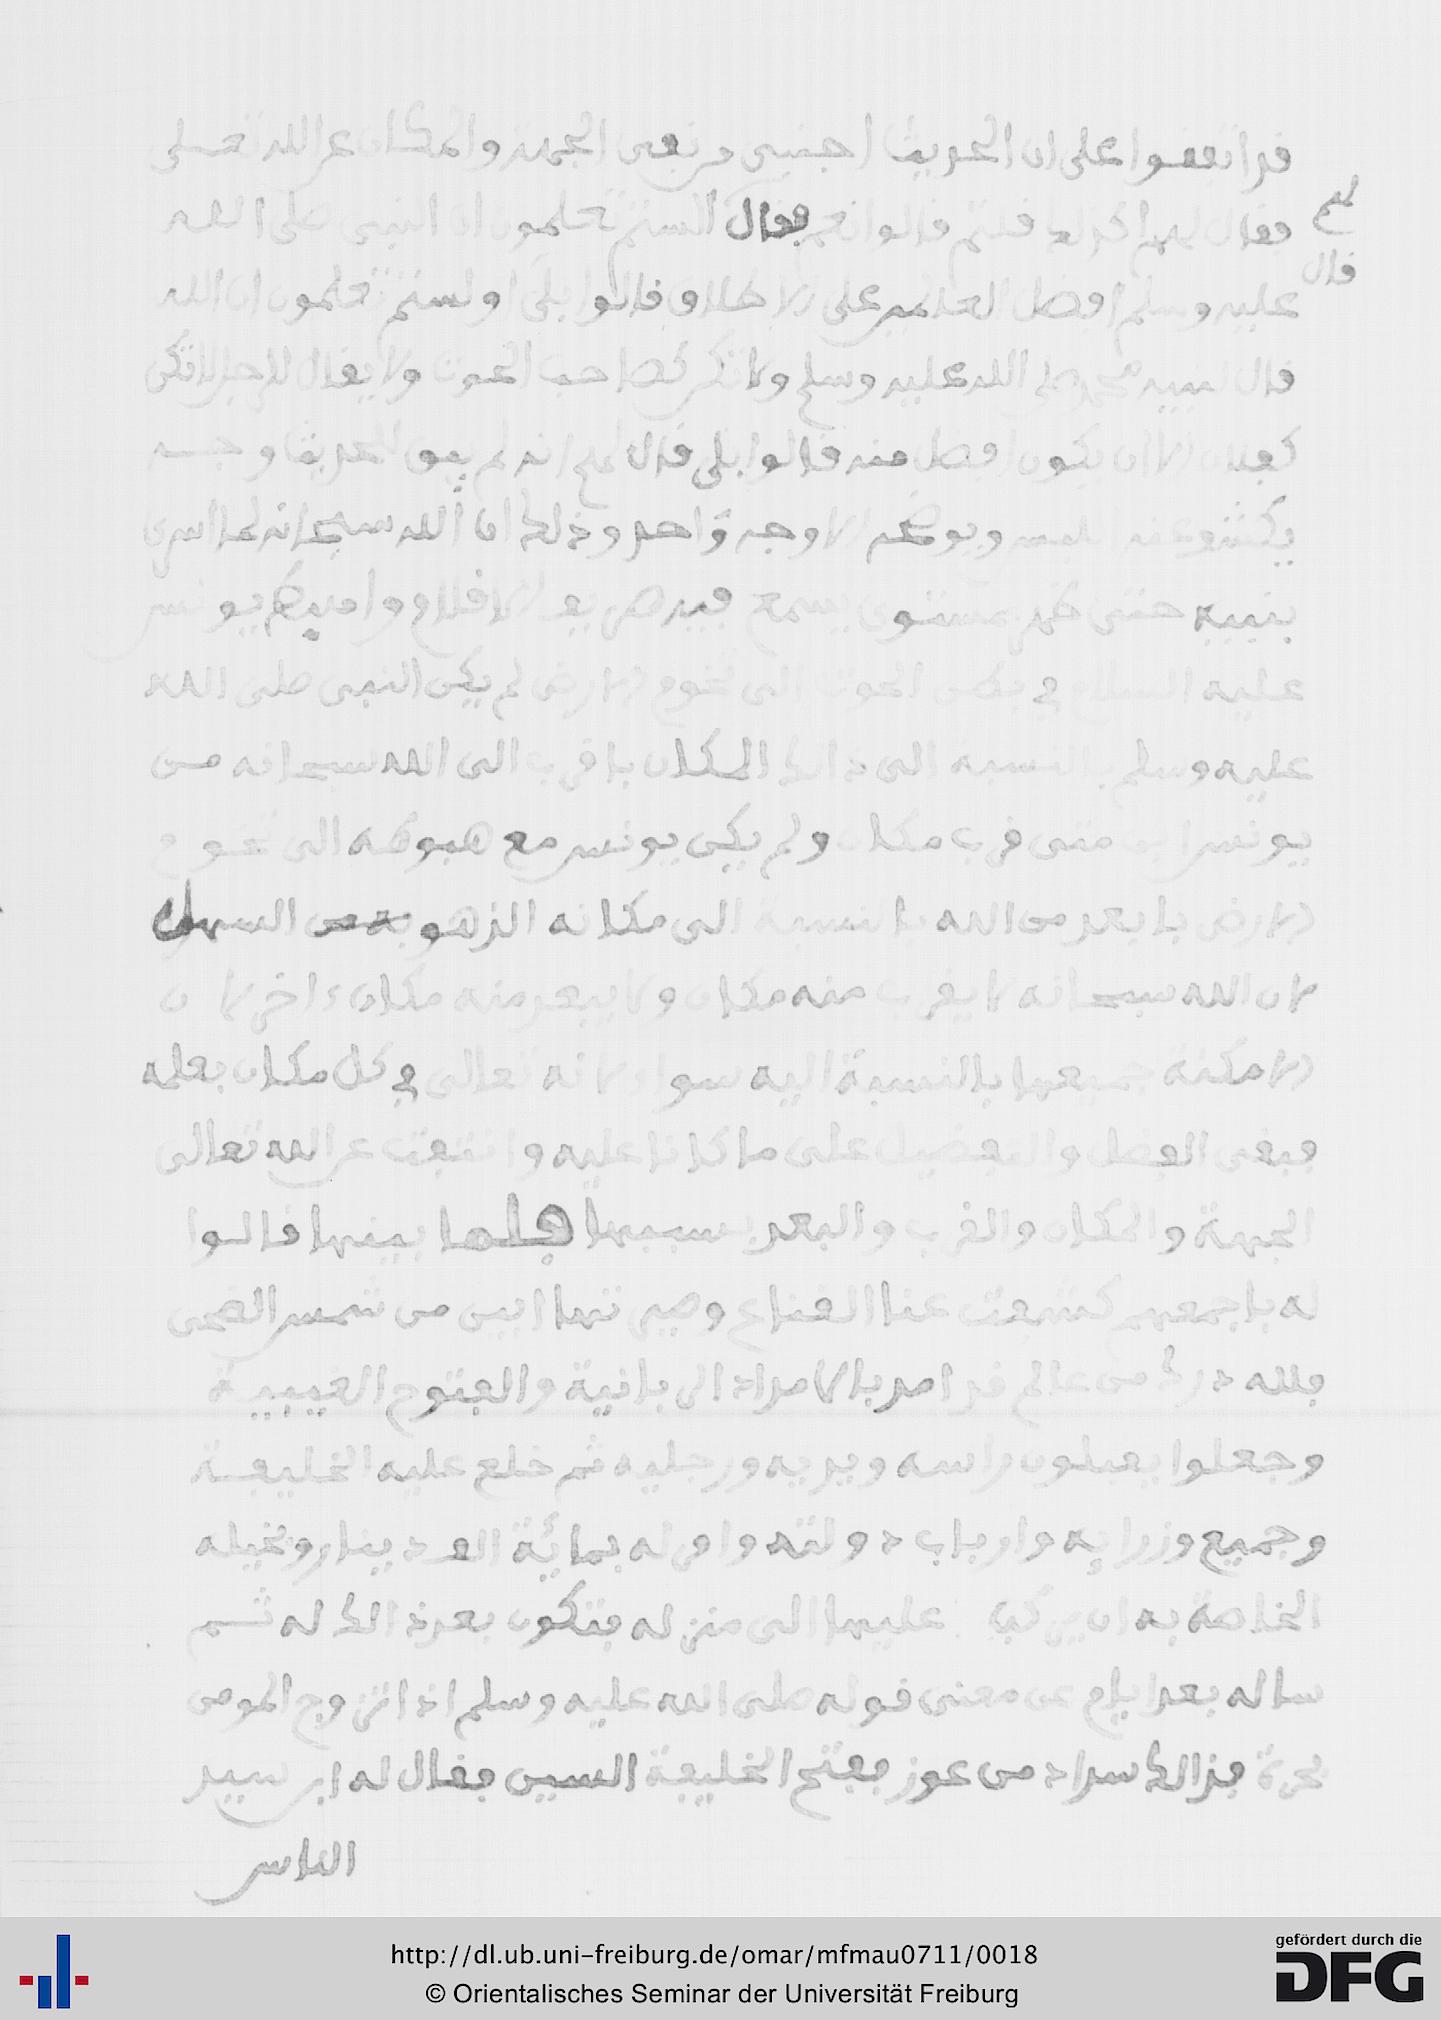 قد اتفقوا على ان الحديث اجنبي من نفي الجهة والمكان عن الله تعلى
فقال لهم اكذلك قلتم قالوا نعم فقال الستم تعلمون ان النبي صلى الله
لهم
قال
عليه وسلم افضل العالمين على الاطلاق قالوا بلى اولستم تعلمون ان الله
قال لنبيه محمد صلى الله عليه وسلم ولا تكن كصاحب الحوت ولا يقال للرجل لا تكن
كفلان الا ان يكون افضل منه قالوا بلى قال لهم انه لم يبق للحديث وجه
يكشف عنه اللبس ويوضحه الا وجه واحد وذلك ان الله سبحانه لما اسرى
بنبيه حتى ظهر بمستوى يسمع فيه صريف الاقلام واهبط يونس
عليه السلام في بطن الحوت الى تخوم الارض لم يكن النبي صلى الله
عليه وسلم بالنسبه الى ذالك المكان باقرب الى الله سبحانه من
يونس ابن متى قرب مكان ولم يكن يونس مع هبوطه الى تخوم
الارض بابعد من الله بالنسبة الى مكانه الذ هو به من
لان الله سبحانه لا يقرب منه مكان ولا يبعد منه مكان ءاخر لا ن
الامكنة جميعها بالنسبة اليه سواء لانه تعالى في كل مكان بعلمه
فبقى الفضل والتفضيل على ما كانا عليه وانتفت عن الله تعالى
الجهة والمكان والقرب والبعد بسببها فلما بينها قالوا
له باجمعهم كشفت عنا القناع وصيرتها ابين من شمس الضحى
فلله درك من عالم قد امد بالامداد الربانية والفتوح الغيبية
وجعلوا يقبلون راسه ويديه ورجليه ثم خلع عليه الخليفة
وجميع وزرايه وارباب دولته وامر له بمائة الف دينار وبخيله
الخاصة به ان يركب عليها الى منزله فتكون بعد ذالك له ثم
ساله بعد ايام عن معنى قوله صلى الله عليه وسلم اذا تزوج المومن
بحرة فذالك سداد من عوز ففتح الخليفة السين فقال له ابن سيد
الناس
http://dl.ub.uni-freiburg.de/omar/mfmau0711/0018
© Orientalisches Seminar der Universität Freiburg
gefördert durch die
DFG